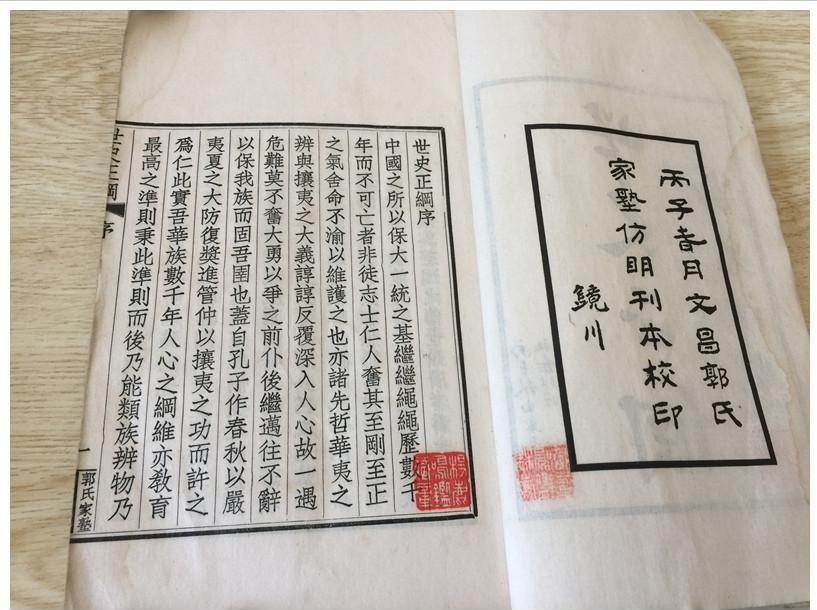 丙子春月文昌郭氏
家塾仿明刊本校印
鏡川
世史正綱序
中國之所以保大一統之基繼繼繩繩歷數千
年而不可亡者非徒志士仁人奮其至剛至正
之氣舍命不渝以維護之也亦諸先哲華夷之
辨與攘夷之大義諄諄反覆深入人心故一遇
危難莫不奮大勇以爭之前仆後繼邁往不辭
以保我族而固吾圉也蓋自孔子作春秋以嚴
夷夏之大防復獎進管仲以攘夷之功而許之
爲仁此實吾華族數千年人心之綱維亦教育
最高之準則秉此準則而後乃能類族辨物乃
世史正綱
序
一
郭氏家塾